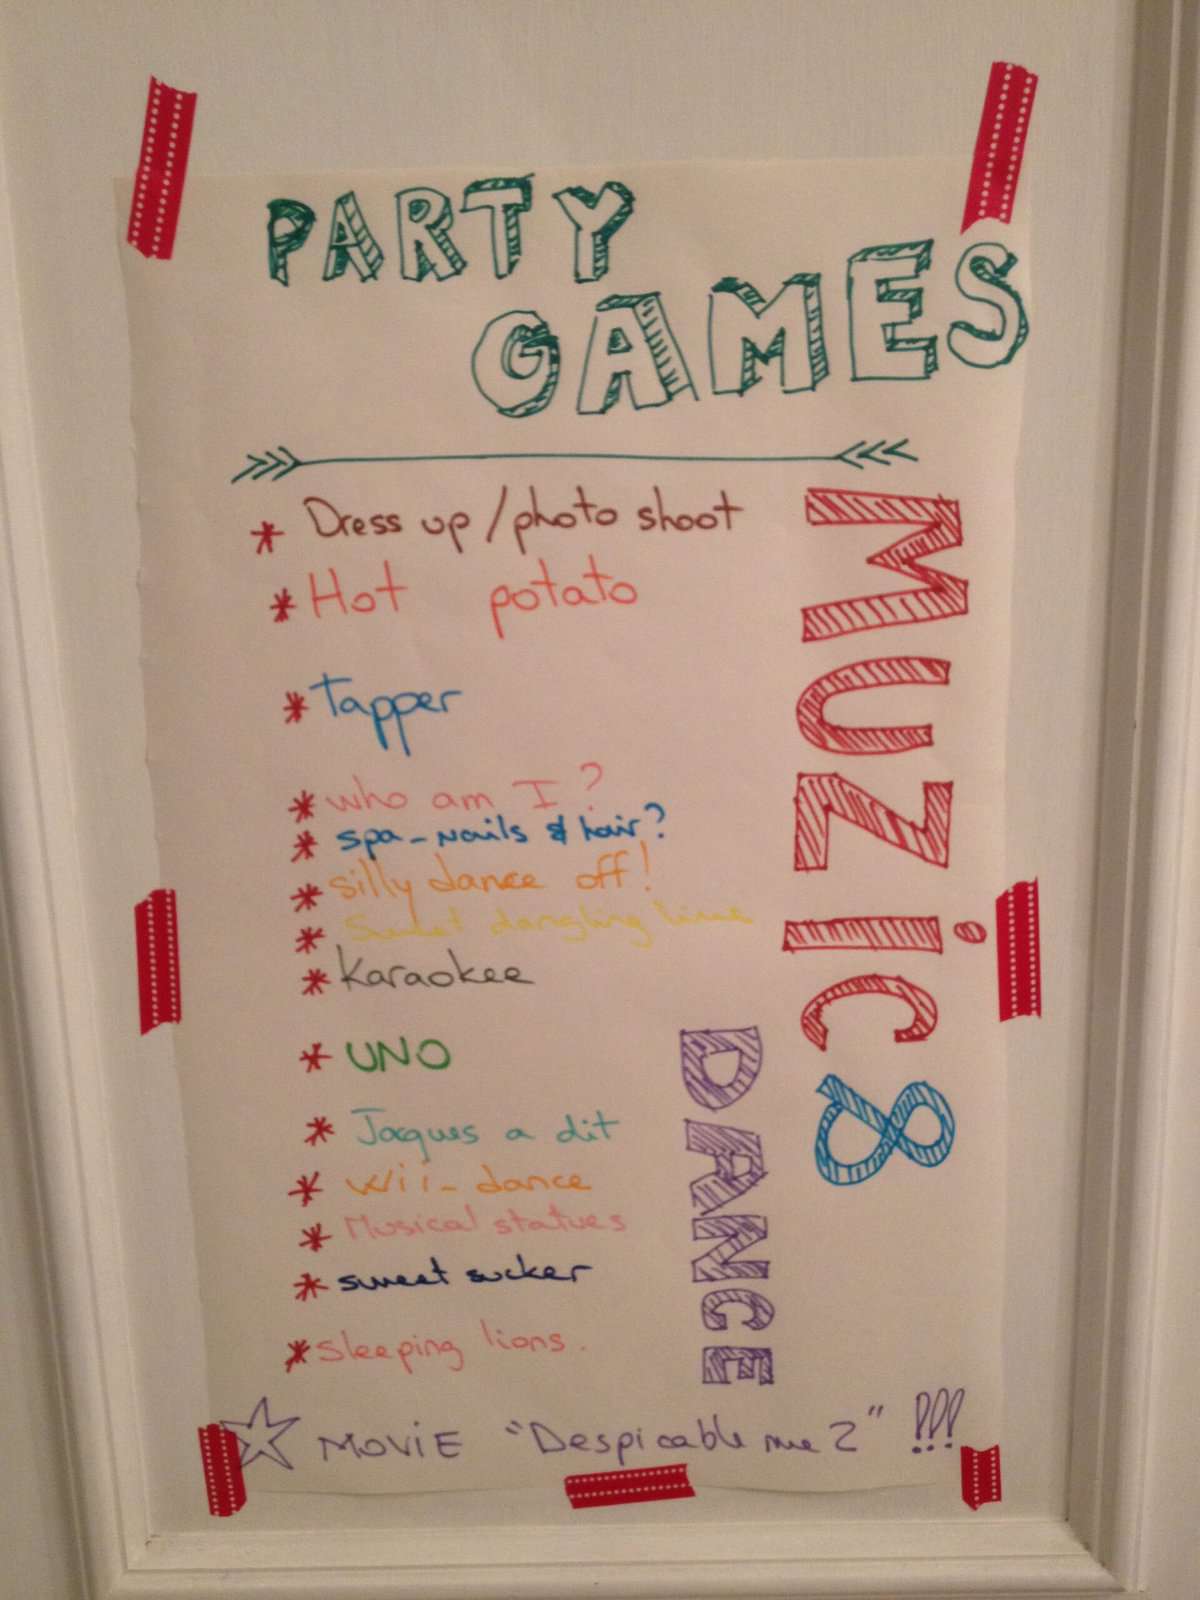 PARTY
GAMES
* Dress up / photo shoot
* Hot potato
* Tapper
* who am I ?
* spa - nails & hair ?
* silly dance off !
* Sweet dangling line
* Karaokee
* UNO
* Jaques a dit
* wii - dance
* Musical statues
* sweet sucker
* sleeping lions .
MUZiC &
DANCE
MOViE "Despicable me 2" !!!